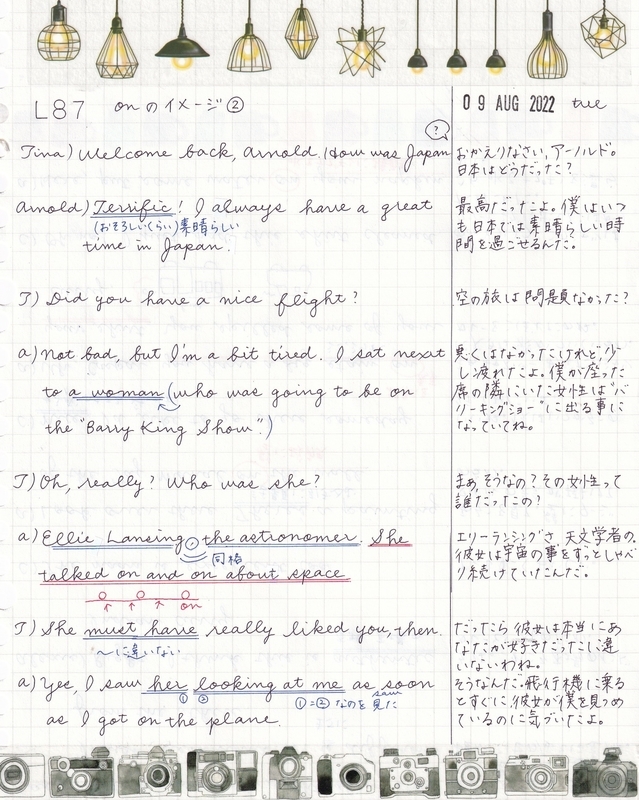 L87 onのイメージ②
09 AUG 2022 tue
?
Tina) Welcome back, Arnold. How was Japan
おかえりなさい、アーノルド。
日本はどうだった？
Arnold) Terrific! I always have a great
(おそろしいくらい)素晴らしい
time in Japan.
最高だったよ。僕はいつ
も日本では素晴らしい時
間を過ごせるんだ。
T) Did you have a nice flight?
空の旅は問題なかった？
a) Not bad, but I'm a bit tired. I sat next
to a woman (who was going to be on
the "Barry King Show".)
悪くはなかったけれど、少
し疲れたよ。僕が座った
席の隣にいた女性は"バ
リーキングショー"に出る事に
なっていてね。
T) Oh, really? Who was she?
まぁ、そうなの？その女性って
誰だったの？
a) Ellie Lansing, the astronomer. She
同格
talked on and on about space
on
エリーランシングさ、天文学者の。
彼女は宇宙の事をずっとしゃべ
り続けていたんだ。
T) She must have really liked you, then.
〜に違いない
だったら彼女は本当にあ
なたが好きだったに違
いないわね。
a) Yes, I saw her looking at me as soon
① ② ①=②なのを見た saw
as I got on the plane.
そうなんだ。飛行機に乗る
とすぐに、彼女が僕を見つめ
ているのに気づいたよ。